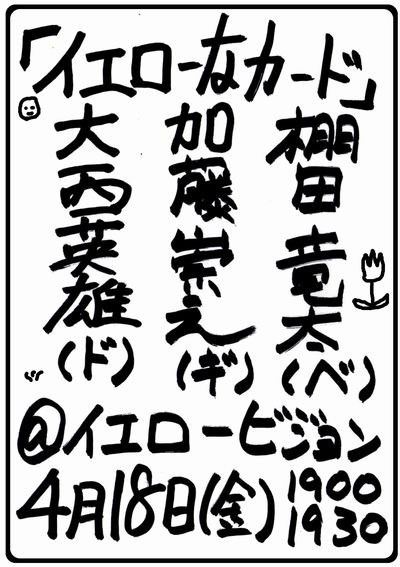 「イエローなカード」
棚田竜太(ベ)
加藤崇之(ギ)
大西英雄(ド)
@イエロービジョン
4月18日(金) 1900
1930